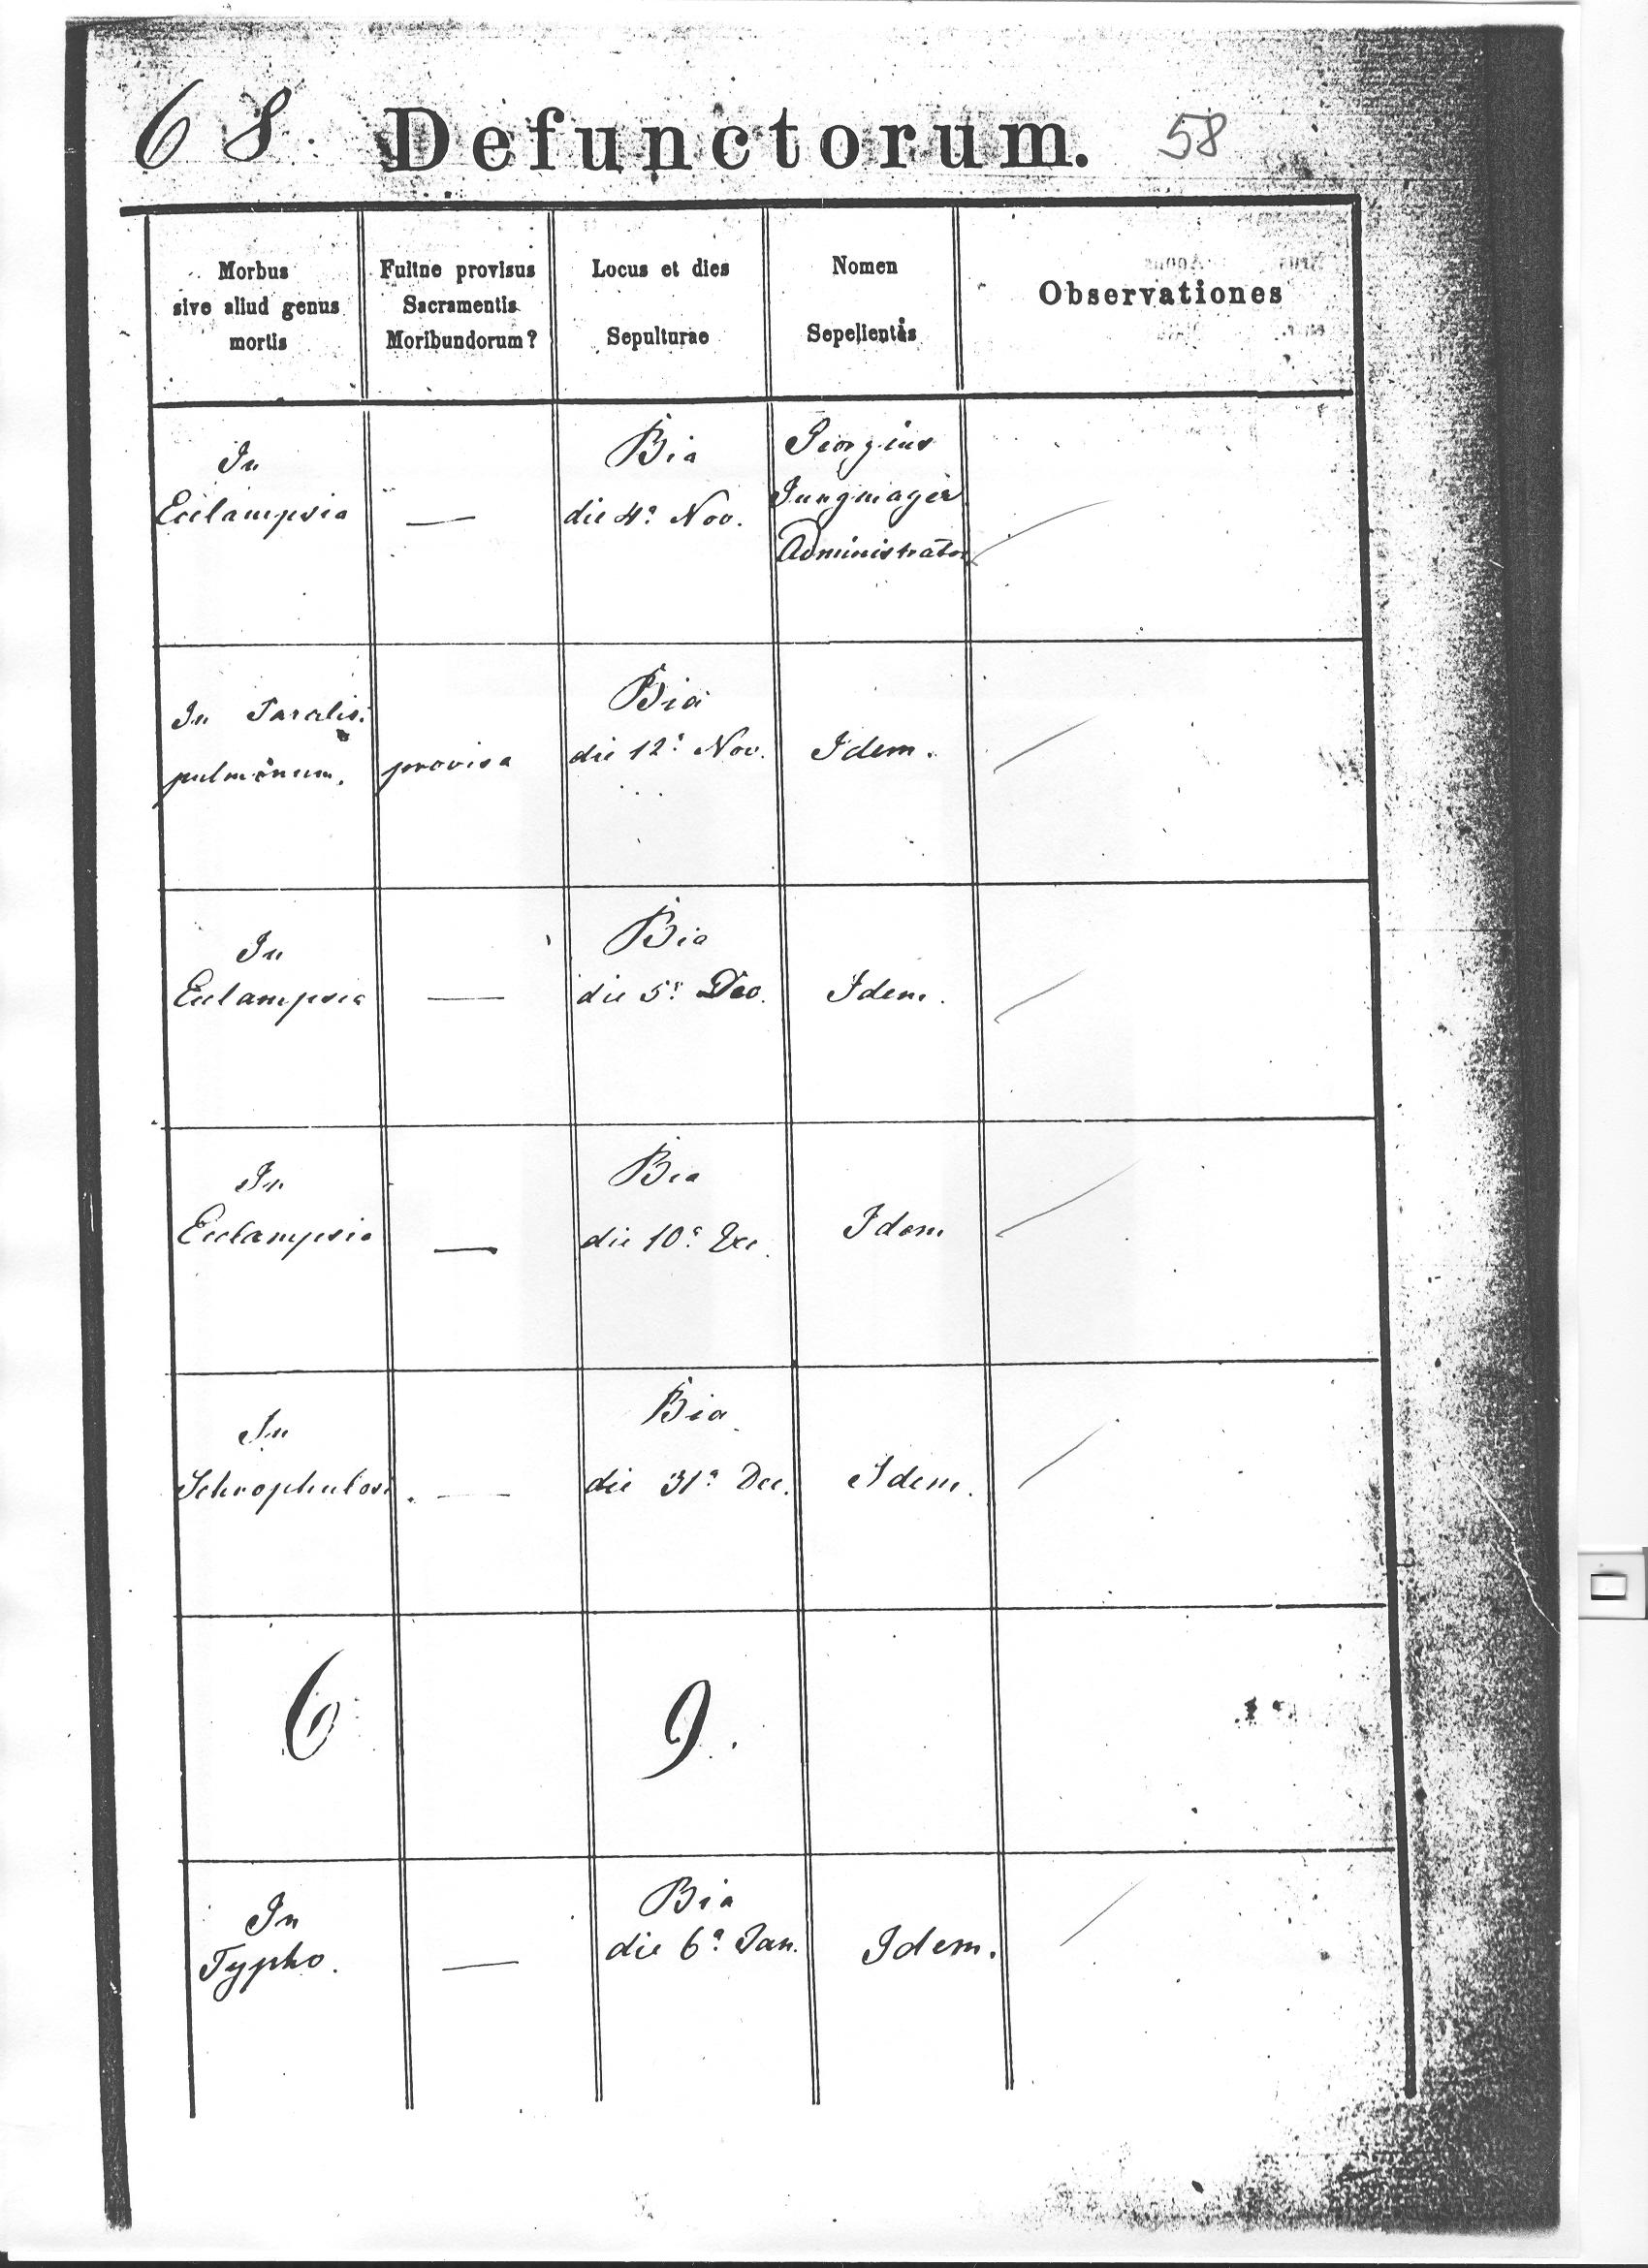 68. Defunctorum. 58
Morbus
sive aliud genus
mortis
Fuitne provisus
Sacramentis
Moribundorum?
Locus et dies
Sepulturae
Nomen
Sepelientis
Observationes
In
Ecclampsia
—
Bia
die 4ª Nov.
Georgius
Jungmayer
Administrator
In Paralis.
pulmonum.
provisa
Bia
die 12ª Nov.
Idem.
In
Ecclampsia
—
Bia
die 5ª Dec.
Idem.
In
Ecclampsia
—
Bia
die 10ª Dec.
Idem
In
Schrophulosi.
—
Bia
die 31ª Dec.
Idem.
6 9.
In
Typho.
—
Bia
die 6ª Jan.
Idem.